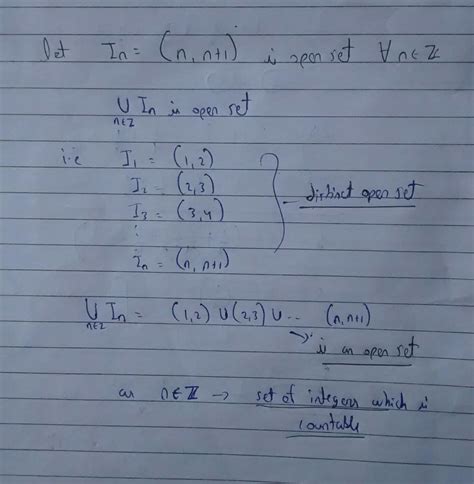 let In = (n, n+1) is open set ∀ n ∈ ℤ
∪ In is open set
n∈ℤ
i.e I1 = (1,2)
I2 = (2,3)
I3 = (3,4)
⋮
In = (n, n+1)
distinct open set
∪ In = (1,2) ∪ (2,3) ∪ ... (n, n+1)
n∈ℤ
→ is an open set
as n∈ℤ → set of integers which is
countable